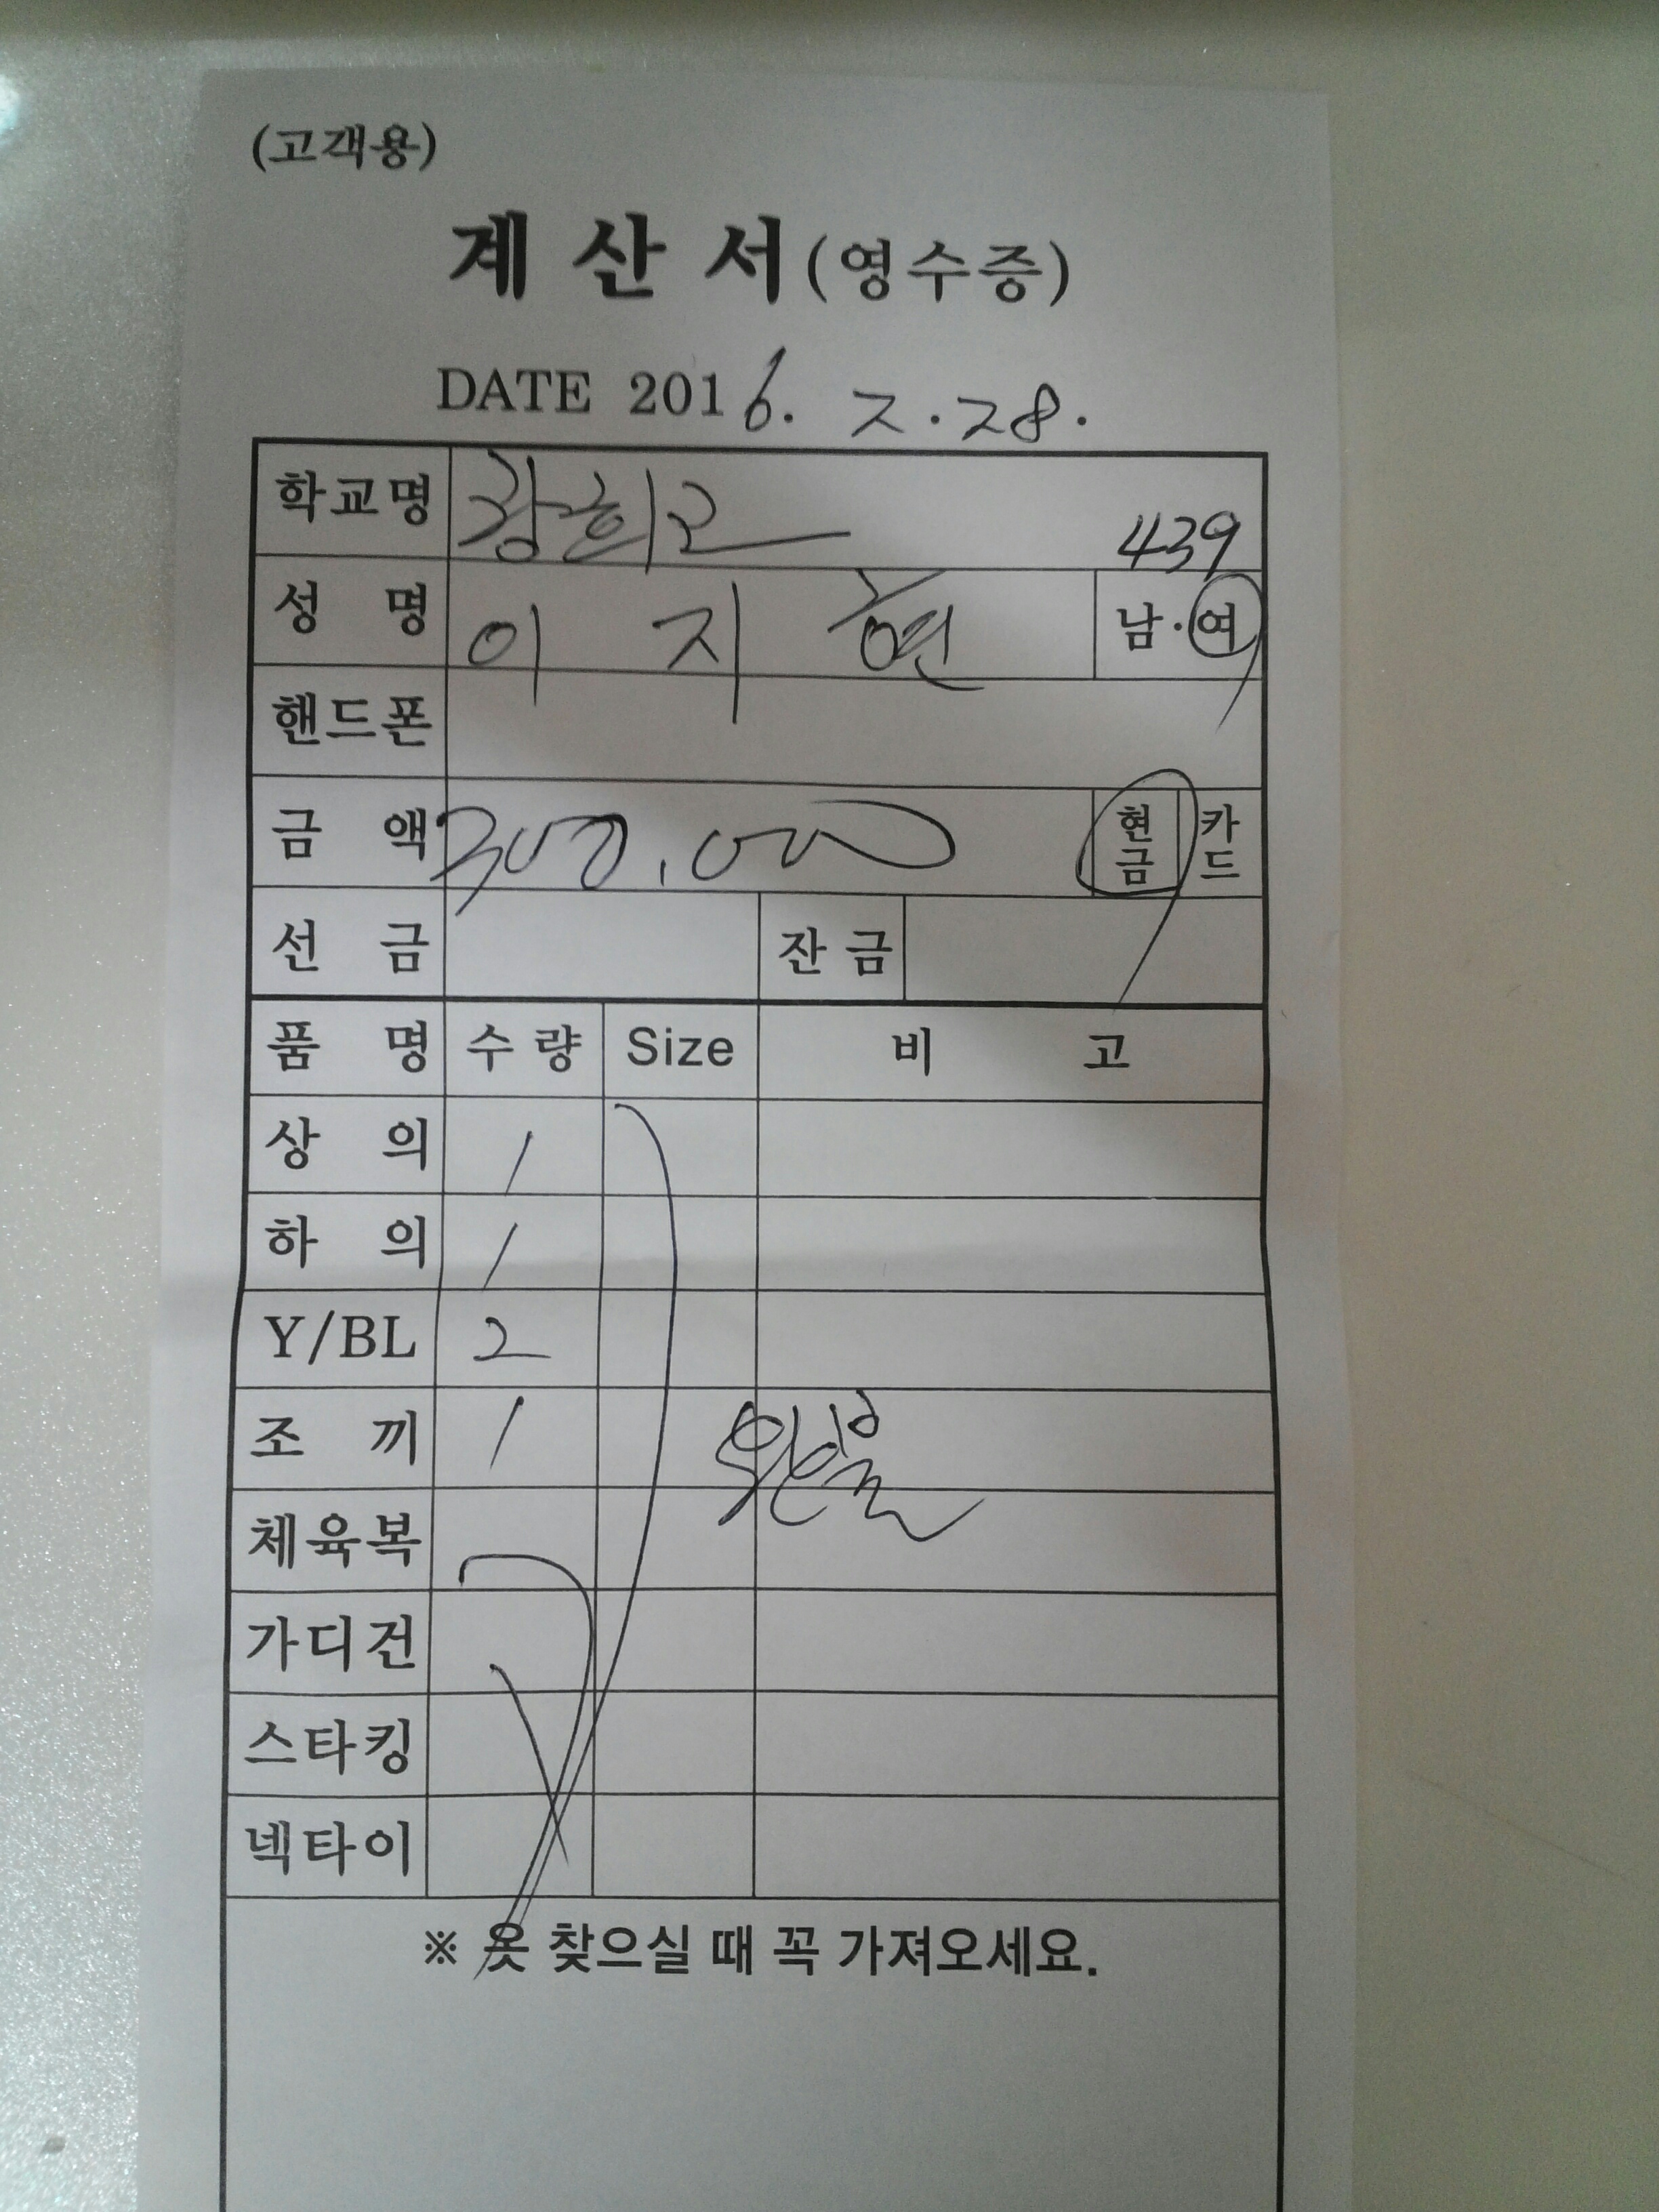 (고객용)
계 산 서 (영수증)
DATE 2016. 2. 28.
학교명 창희고 439
성 명 이 지 현 남·여
핸드폰
금 액 300,000 현금 카드
선 금 잔 금
품 명 수 량 Size 비 고
상 의 1
하 의 1
Y/BL 2
조 끼 1
체육복
가디건
스타킹
넥타이
※ 옷 찾으실 때 꼭 가져오세요.